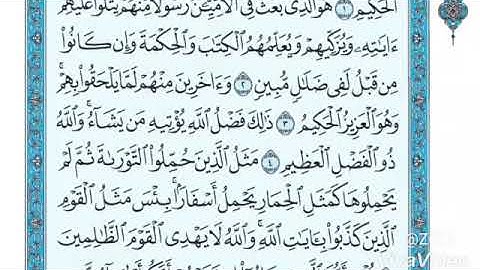 ٱلْحَكِيمِ ١ هُوَ ٱلَّذِى بَعَثَ فِى ٱلْأُمِّيِّـۧنَ رَسُولًا مِّنْهُمْ يَتْلُوا۟ عَلَيْهِمْ
ءَايَـٰتِهِۦ وَيُزَكِّيهِمْ وَيُعَلِّمُهُمُ ٱلْكِتَـٰبَ وَٱلْحِكْمَةَ وَإِن كَانُوا۟
مِن قَبْلُ لَفِى ضَلَـٰلٍ مُّبِينٍ ٢ وَءَاخَرِينَ مِنْهُمْ لَمَّا يَلْحَقُوا۟ بِهِمْ ۚ
وَهُوَ ٱلْعَزِيزُ ٱلْحَكِيمُ ٣ ذَٰلِكَ فَضْلُ ٱللَّهِ يُؤْتِيهِ مَن يَشَآءُ ۚ وَٱللَّهُ
ذُو ٱلْفَضْلِ ٱلْعَظِيمِ ٤ مَثَلُ ٱلَّذِينَ حُمِّلُوا۟ ٱلتَّوْرَىٰةَ ثُمَّ لَمْ
يَحْمِلُوهَا كَمَثَلِ ٱلْحِمَارِ يَحْمِلُ أَسْفَارًۢا ۚ بِئْسَ مَثَلُ ٱلْقَوْمِ
ٱلَّذِينَ كَذَّبُوا۟ بِـَٔايَـٰتِ ٱللَّهِ ۚ وَٱللَّهُ لَا يَهْدِى ٱلْقَوْمَ ٱلظَّـٰلِمِينَ